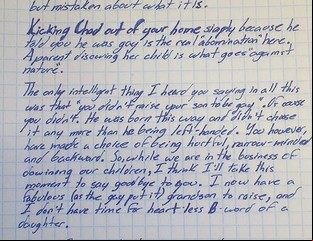 but mistaken about what it is.
Kicking Chad out of your home simply because he
told you he was gay is the real "abomination" here.
A parent disowning her child is what goes "against
nature".
The only intelligent thing I heard you saying in all this
was that "you didn't raise your son to be gay". Of course
you didn't. He was born this way and didn't choose
it any more than he being left-handed. You however,
have made a choice of being hurtful, narrow-minded
and backward. So, while we are in the business of
disowning our children, I think I'll take this
moment to say goodbye to you. I now have a
fabulous (as the gay put it) grandson to raise, and
I don't have time for heart less B-word of a
daughter.